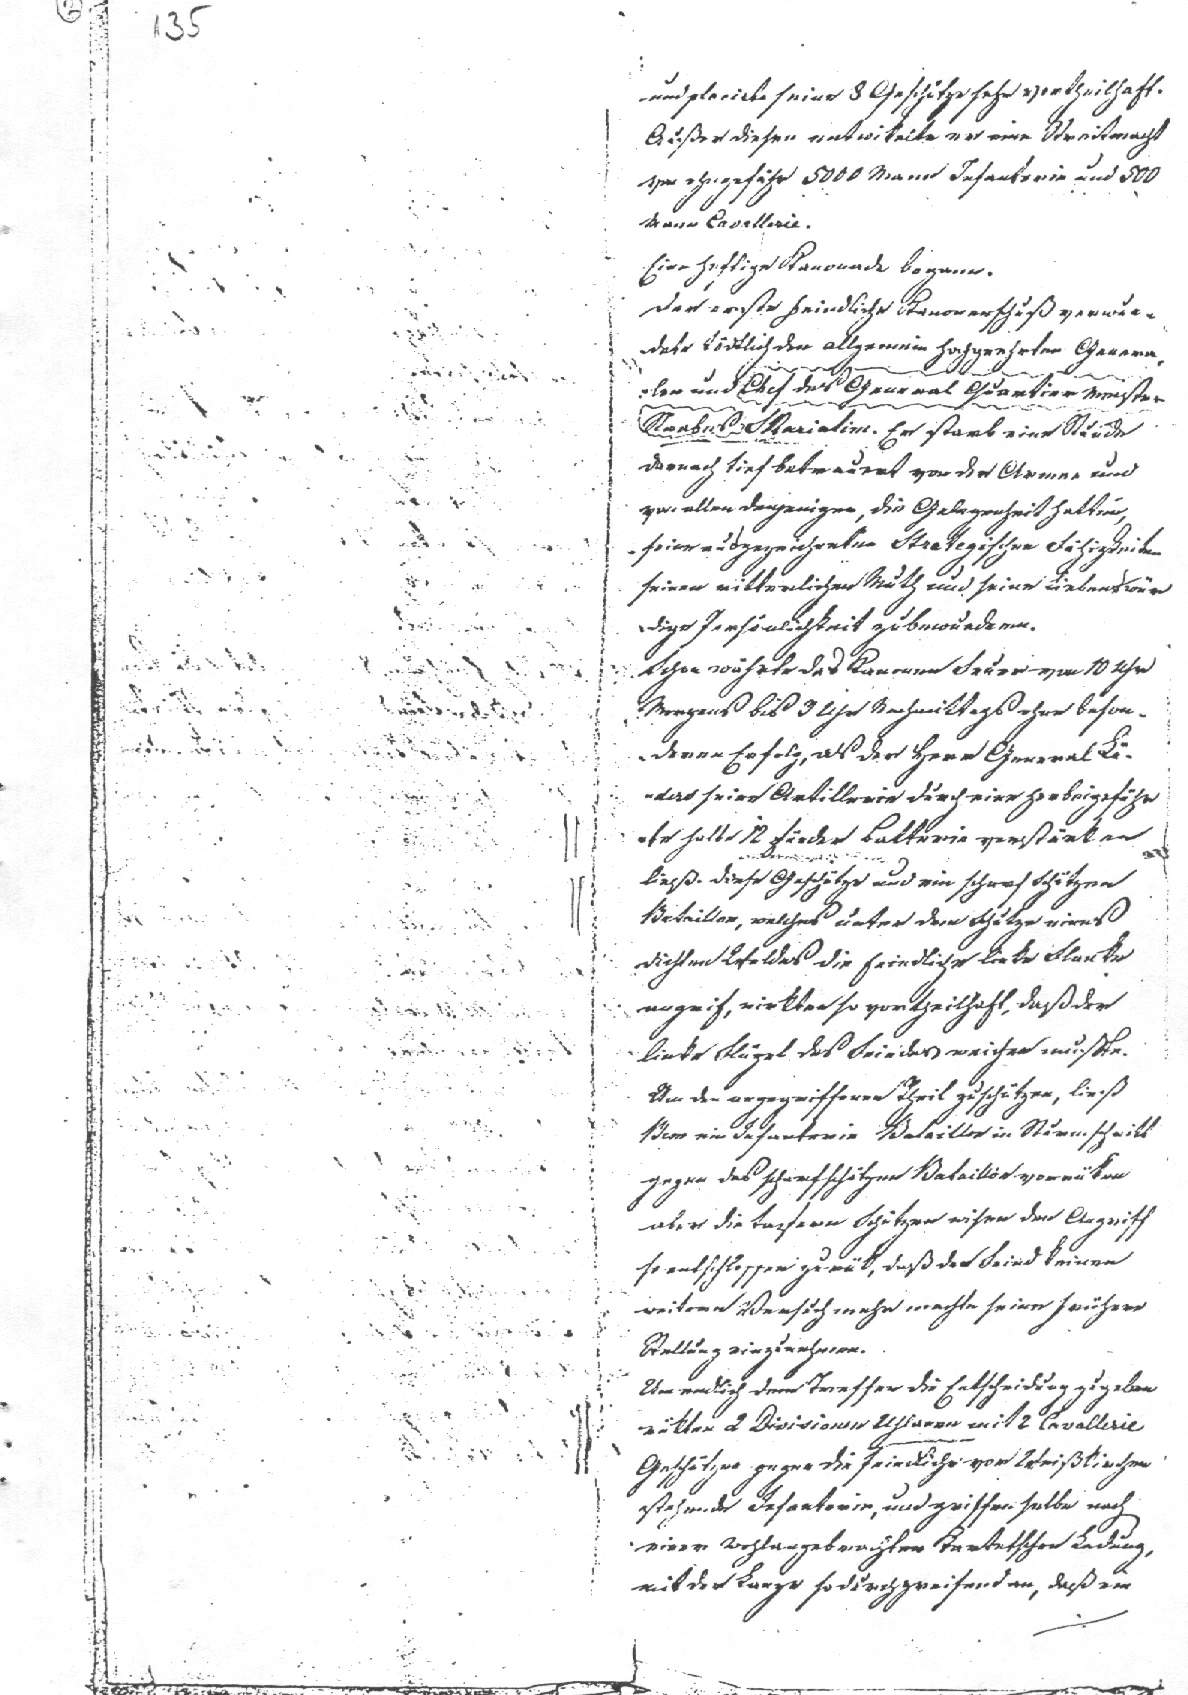 135
und placirte seine 8 Geschütze sehr vortheilhaft.
Außer diesen entwikelte er eine Streitmacht
von ohngefähr 5000 Mann Infanterie und 500
Mann Cavallerie.
Eine heftige Kanonade begann.
Der erste feindliche Kanonenschuß verwun-
dete tödtlich den allgemein hochgeehrten Genera-
len und Chef des General Quartier Meister
Stabes. Er starb eine Stunde
darnach tief betrauert von der Armee und
von allen denjenigen, die Gelegenheit hatten,
seine ausgezeichneten Strategischen Fähigkeiten
seinen ritterlichen Muth und seine liebenswür
dige Persönlichkeit zu bewundern.
Schon währte das Kanonen Feuer von 10 Uhr
Morgens bis 3 Uhr Nachmittags ohne beson-
deren Erfolg, als der Herr General
seine Artillerie durch eine herbeigeführ
te halbe 12 Batterie verstärken
ließ. Diese Geschütze und ein scharf Schützen
Bataillon, welches unter dem Schutze eines
dichten die feindliche linke Flanke
angrif, wirkten so vortheilhaft, daß der
linke Flügel des Feindes weichen mußte.
Um den angegriffenen Theil zu schützen, ließ
Bem ein Infanterie Bataillon in Sturmschritt
gegen das scharfschützen Bataillon vorrüken
aber die tapfern Schützen wisen den Angriff
so entschlossen zurük, daß der Feind keinen
weitern Versuch mehr machte seine frühere
Stellung einzunehmen.
Um endlich dem Treffen die Entscheidung zu geben
rükten 2 Divisionen Uhlanen mit 2 Cavallerie
Geschützen gegen die feindliche vor Weißkirchen
stehende Infanterie, und griffen selbe nach
einer wohlangebrachten Kartetschen Ladung,
mit der Lanze so durchgreifend an, daß ein